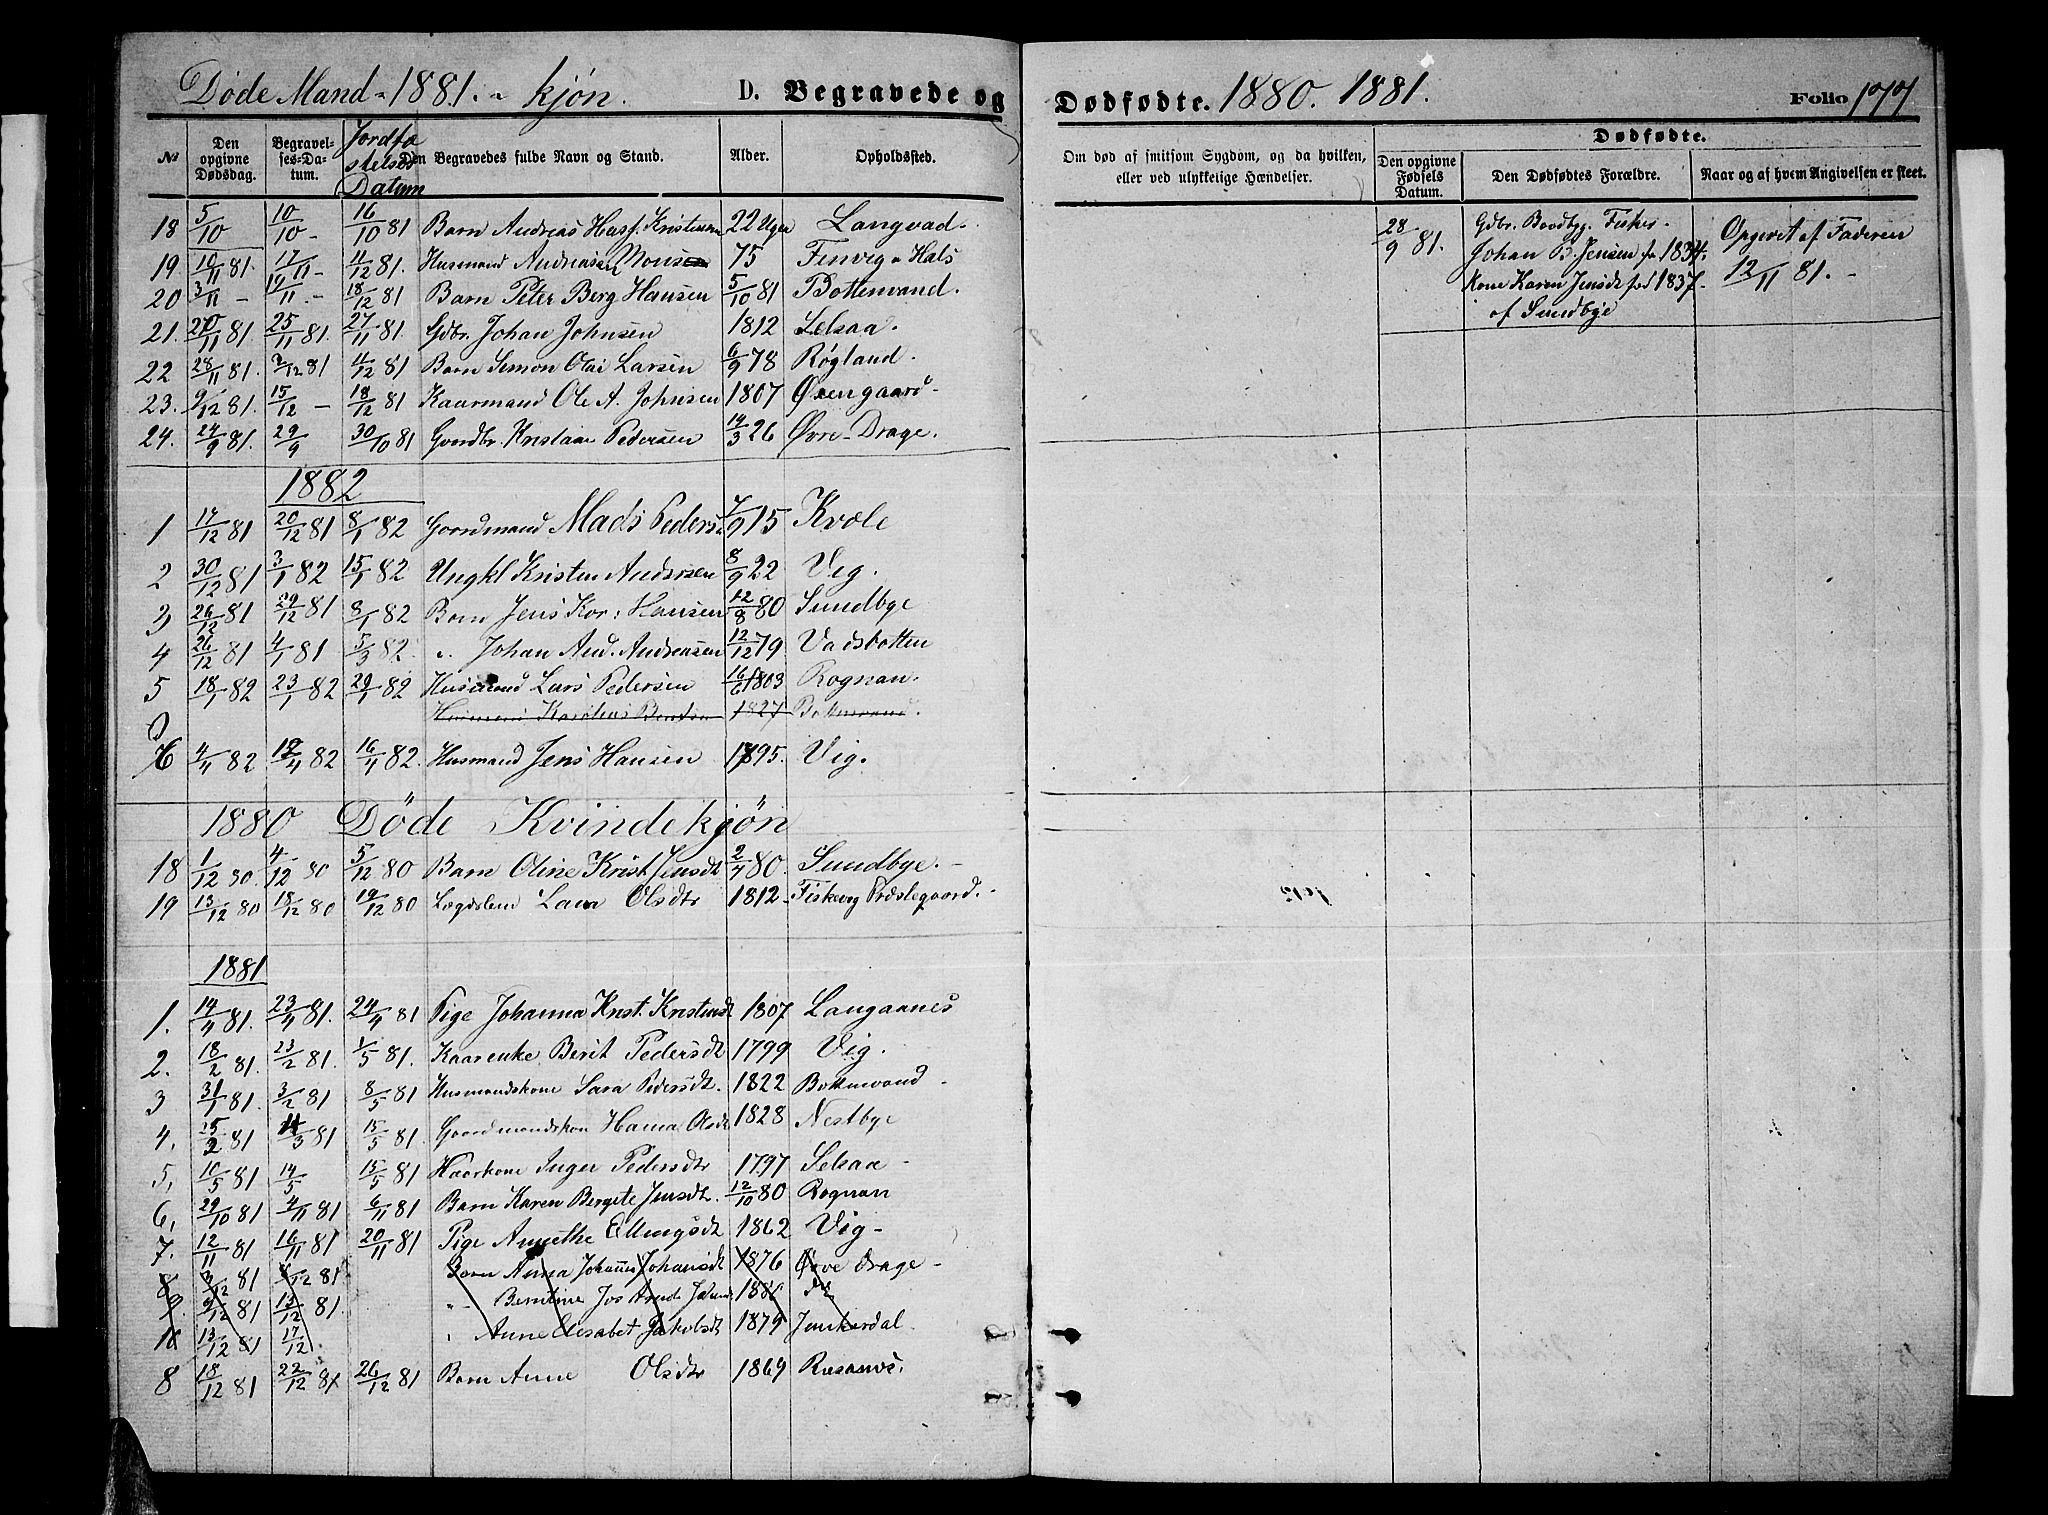 Døde Mand- 1881. - kjøn. D. Begravede og
Dødfødte. 1880. 1881. Folio 177
№ Den opgivne Dødsdag. Begravelses-Datum. Jordfæstelses Datum Den Begravedes fulde Navn og Stand. Alder. Opholdssted.
Om død af smitsom Sygdom, og da hvilken, eller ved ulykkelige Hændelser. Dødfødte. Den opgivne Fødsels Datum. Den Dødfødtes Forældre. Naar og af hvem Angivelsen er skeet.
18 5/10 10/10 - 16/10 81 Barn Andreas Kristensen 22 Uger Langvad.
19 10/11 81. 17/11 - 4/12 81. Husmand Andreas Monsen 75 Finvig Hals
20 3/11 - 12/11 - 18/12 81 Barn Peter Berg Hansen 5/10 81 Bottenvand.
21. 20/11 81 25/11 81. 27/11 81. Gdbr. Johan Johnsen 1812 Selsaa.
22 28/11 81. 2/12 81 4/12 81 Barn Simon Olai Larsen 6/9 78 Røgland.
23. 9/12 81. 15/12 - 18/12 81 Kaarmand Ole A. Johnsen 1807 Øxengaard-
24. 24/9 81. 29/9 30/10 81 Gaardbr. Kristian Pedersen 14/3 26 Øvre-Drage.
28/9 81. Gdbr. Fisker
Johan B. Jensen fr 1834.
Kone Karen Jensdt fød 1837.
af Sundbye
Opgivet af Faderen
12/11 81. -
1882
1 14/12 81 20/12 81 8/1 82 Gaardmand Mads Peders 7/9 15 Kvæle
2 30/12 81 3/1 82 15/1 82 Ungkl Kristen Andersen 8/9 22 Vig.
3 26/12 81 29/12 81 8/1 82 Barn Jens Kor. Hansen 12/8 80 Sundbye
4 26/12 81 4/1 81 5/3 82 „ Johan And. Andreasen 12/12 79 Vadsbotten
5 18/1 82 23/1 82 29/1 82 Husmand Lars Pedersen 16/6 1803 Rognan.
1827 Bottenvand.
6 4/4 82 12/4 82 16/4 82. Husmand Jens Hansen 1795. Vig.
1880 Döde Kvindekjön
18 1/12 80 4/12 80 5/12 80 Barn Oline Krist Jensdt 2/4 80. Sundbye. -
19 13/12 80 18/12 80 19/12 80 Lægdslem Olsdtr 1812 - Fiskevig Præstegaard. -
1881
1. 14/4 81. 23/4 81. 24/4 81 Pige Johanna Krist. Kristensdt 1807 Langaanes
2. 18/2 81. 23/2 81. 1/5 81. Kaarenke Berit Pedersdt 1799 Vig.
3 31/1 81. 3/2 81 8/5 81 Husmandskone Sara Pedersdt. 1822 Bottenvand -
4. 25/2 81 4/3 81 15/5 81. Gaardmandskon Hanna Olsdt 1828 Nestbye
5, 10/5 81 14/5 15/5 81 Kaarkone Inger Pedersdtr 1797 Selsaa -
6, 29/10 81 4/11 81 6/11 81 Barn Karen Bergite Jensdt. 12/10 80 Rognan
7. 12/11 81 16/11 81 20/11 81 Pige Annethe Ellingsdt 1862 Vig -
8 3/12 81 8/12 81 Barn Anna Johannes Johansdt 1876 Øvre Drage -
9. 9/12 81 13/12 81. „ Berntine 188 do
10 13/12 81 17/12. „ Anne Elisabet Jakobsdt 1879 Junkerdal.
8 18/12 81 22/12 81 26/12 81 Barn Anne Olsdtr 1869 Rusaanes.